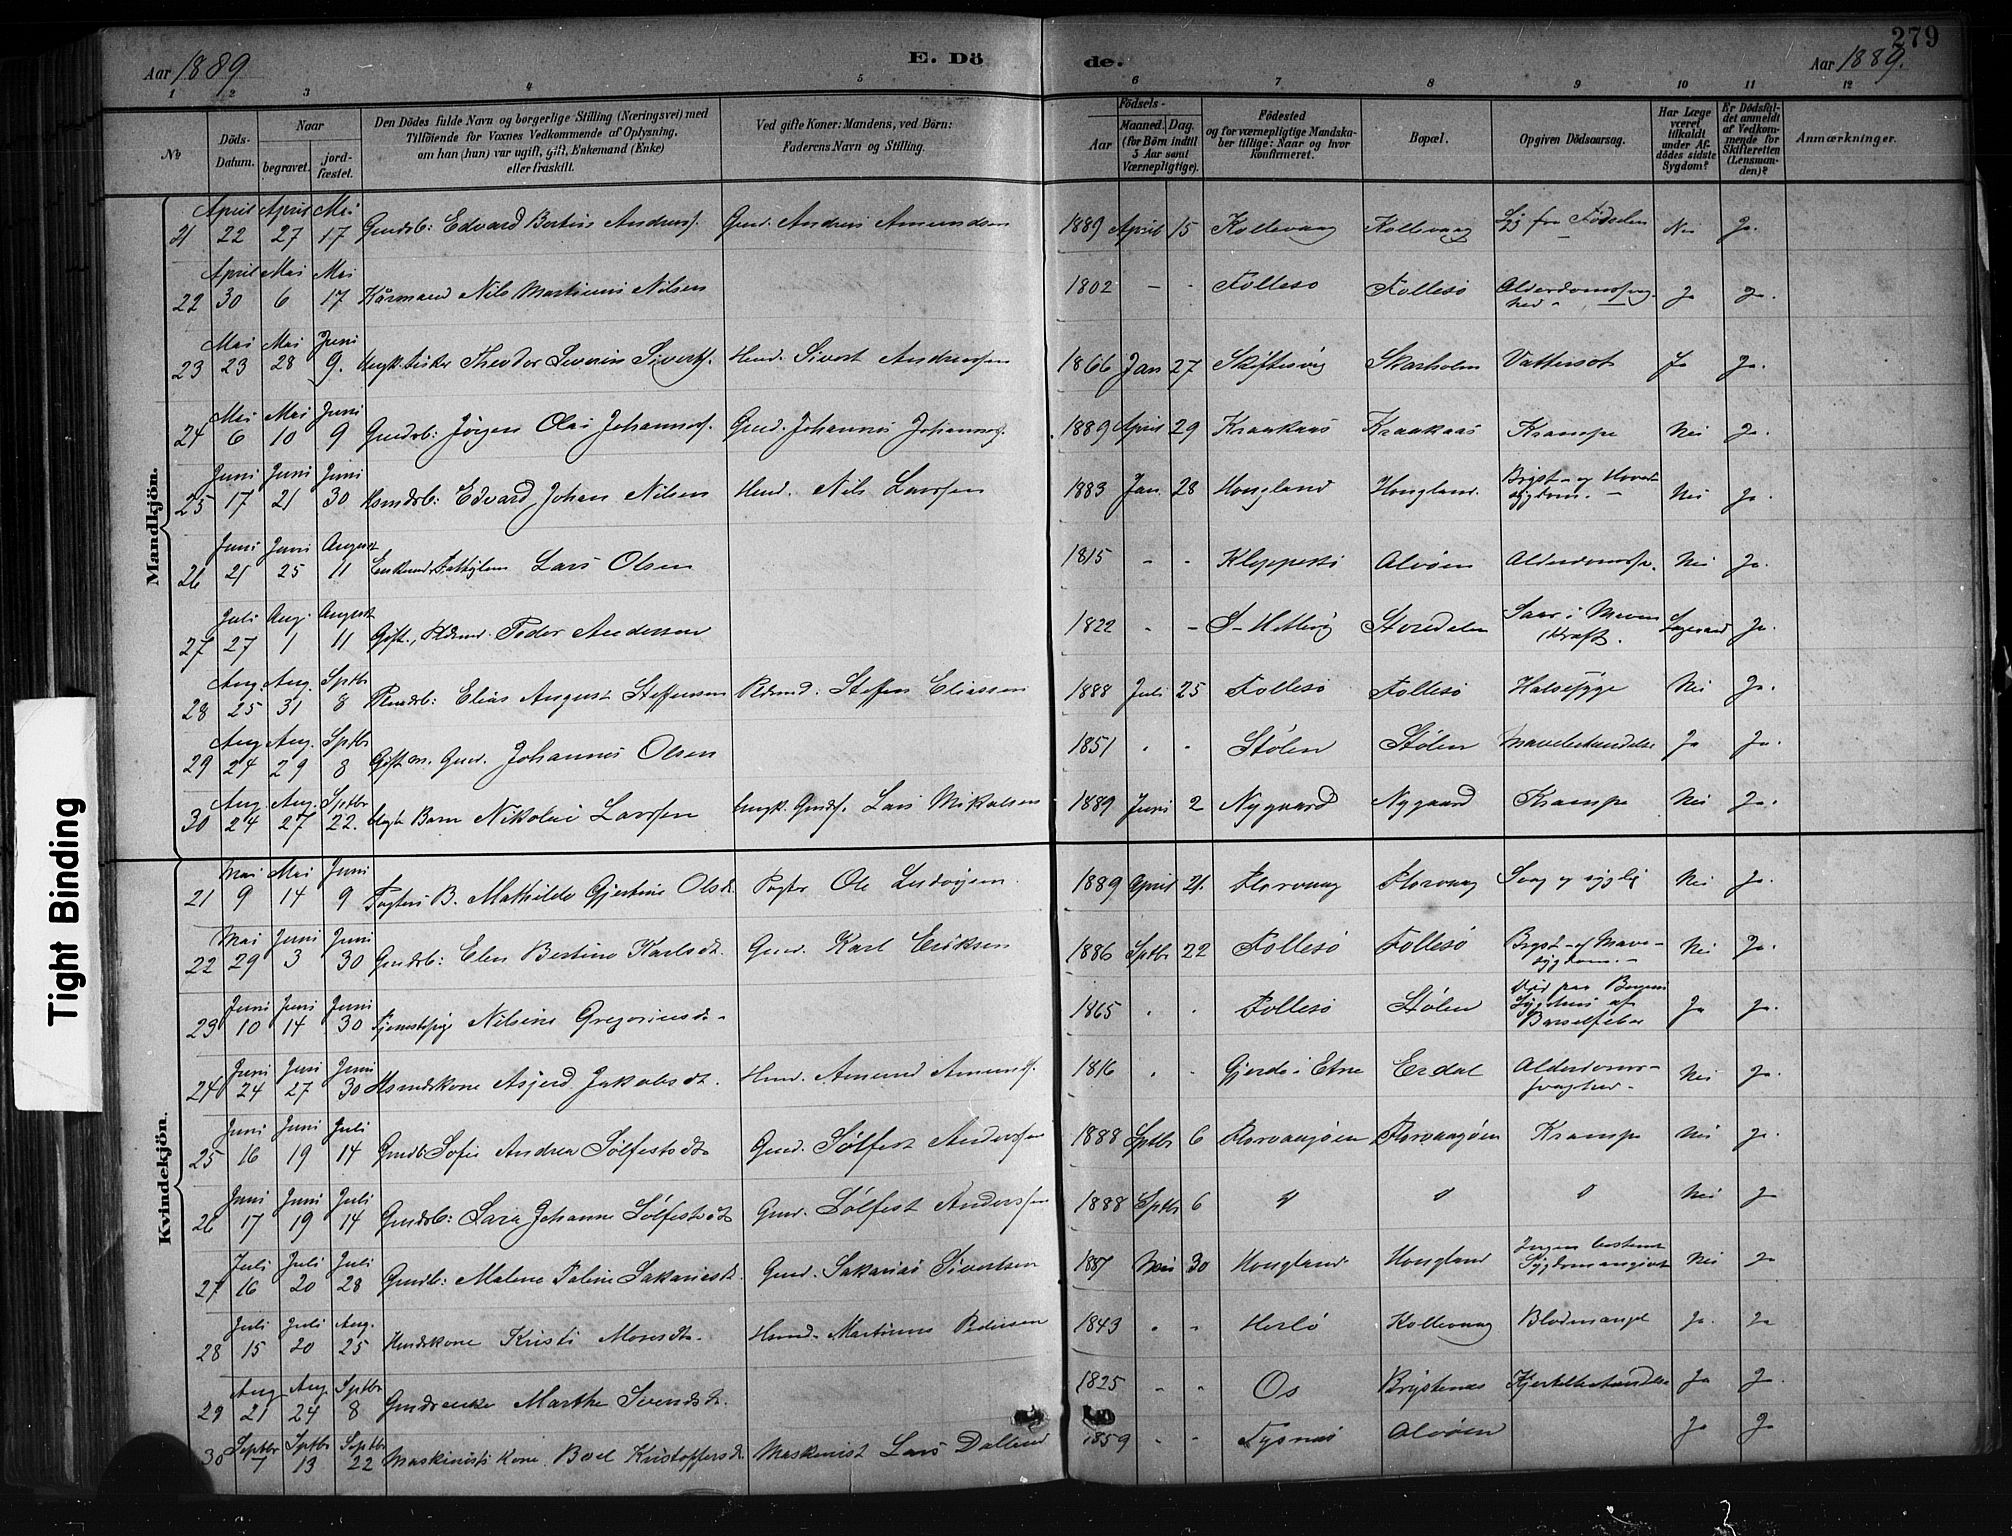 279
Aar 1889
E. Dö
de.
Aar 1889.
1 2 3 4 5 6 7 8 9 10 11 12
No
Döds-Datum.
Naar
begravet.
jord-fæstet.
Den Dödes fulde Navn og borgerlige Stilling (Næringsvei) med
Tilföiende for Voxnes Vedkommende af Oplysning,
om han (hun) var ugift, gift, Enkemand (Enke)
eller fraskilt.
Ved gifte Koner: Mandens, ved Börn:
Faderens Navn og Stilling.
Födsels-
Aar
Maaned. Dag.
(for Börn indtil
5 Aar samt
Værnepligtige).
Födested
og for værnepligtige Mandska-
ber tillige: Naar og hvor
konfirmeret.
Bopæl.
Opgiven Dödsaarsag.
Har Læge
været
tilkaldt
under Af-
dödes sidste
Sygdom?
Er Dödsfal-
det anmeldt
af Vedkom-
mende for
Skifteretten
(Lensman-
den)?
Anmærkninger.
Mandkjön.
21 April 22 April 27 Mai 17 Gmdsb: Edvard Bertin Andreas. Gmd. Andreas Amundsen 1889 April 15 Kollevaag Kollevaag Syg fra Födselen Nei Ja.
22 April 30 Mai 6 Mai 17 Kårmand Nils Martinus Nilsen 1802 - - Follesö Follesö Ja Ja.
23 Mai 23 Mai 28 Juni 9. Theodor Severin Siverts. Hmd. Sivert Andreassen 1866 Jan 27 Skiftesvig Skarholm Vattersot Ja Ja.
24 Mai 6 Mai 10 Juni 9 Gmdsb: Jörgen Olai Johanness. Gmd. Johannes Johanness. 1889 April 29 Kraakaas Kraakaas Krampe Nei Ja.
25 Juni 17 Juni 21 Juni 30 Hsmdsb: Edvard Johan Nilsen Hmd. Nils Larssen 1883 Jan. 28 Hougland Hougland. Bryst- og Hoved-sygdom. Nei Ja.
26 Juni 21 Juni 25 August 11 Lars Olsen 1815 - - Kleppestö Alvöen Alderdomss. Nei Ja.
27 Juli 27 Aug. 1 August 11 Gift, Peder Andersen 1822 - - S-Hetlevig Storedalen Saar i Maven (Kræft). Ja.
28 Aug. 25 Aug. 31 Sptbr 8 Elias August Steffensen Steffen Eliassen 1888 Juli 25 Follesö Follesö Halssyge Nei Ja.
29 Aug. 24 Aug. 29 Sptbr 8 Gift m. Gmd. Johannes Olsen 1851 - - Stölen Stölen Mavebetændelse Ja Ja.
30 Aug. 24 Aug. 27 Sptbr 22. Uægte Barn Nikolai Larssen Ungk. Gmds. Lars Mikalsen 1889 Juni 2 Nygaard Nygaard Krampe Nei Ja.
Kvindekjön.
21 Mai 9 Mai 14 Juni 9 Pagters B. Mathilde Gjertine Olsdt. Pagter Ole Ludvigsen. 1889 April 21. Florvaag Florvaag Svag og sygelig Nei Ja.
22 Mai 29 Juni 3 Juni 30 Gmdsb: Elen Bertine Karlsdt. Gmd. Karl Eriksen 1886 Sptbr 22 Follesö Follesö Bryst- og Mave-sygdom.- Nei Ja.
23 Juni 10 Juni 14 Juni 30 Tjenestepige Nilsine Gregoriusdt. 1865 - - Follesö Stölen Död paa Bergens Sygehus af Barselfeber Ja Ja.
24 Juni 24 Juni 27 Juni 30 Hsmdskone Asjerd Jakobsdt. Hmd. Amund Amunds. 1816 - - Gjerde i Etne Erdal Alderdoms-svaghed- Nei Ja.
25 Juni 16 Juni 19 Juli 14 Gmdb: Sofie Andrea Sölfestsdt. Gmd. Sölfest Anderssen 1888 Sptbr 6 Florvaagöen Florvaagöen Krampe Nei Ja.
26 Juni 17 Juni 19 Juli 14 Gmdsb: Sara Johanne Sölfestsdt. Gmd. Sölfest Anderssen 1888 Sptbr 6 " " " Nei Ja
27 Juli 16 Juli 20 Juli 28 Gmdb: Malene Paline Sakariasdt. Gmd. Sakarias Sivertsen 1887 Mai 30 Hougland Hougland Ingen bestemt Sygdom angivet Nei Ja
28 Juli 15 Juli 20 Aug. 25 Hmdskone Kristi Monsdt. Hmd. Martinus Pedersen 1843 - - Herlö Kollevaag Blodmangel Ja. Ja
29 Aug 21 Aug 24 Sptbr 8 Gmdsenke Marthe Svendsdt. 1825 - - Os Kjertelbetændelse Ja Ja.
30 Septbr 7 Sptbr 13 Septbr 22 Maskinists Kone Boel Kristoffersdt. Maskinist Lars Dalland 1859 - - Tysnæs Alvöen Ja Ja
Tight Binding